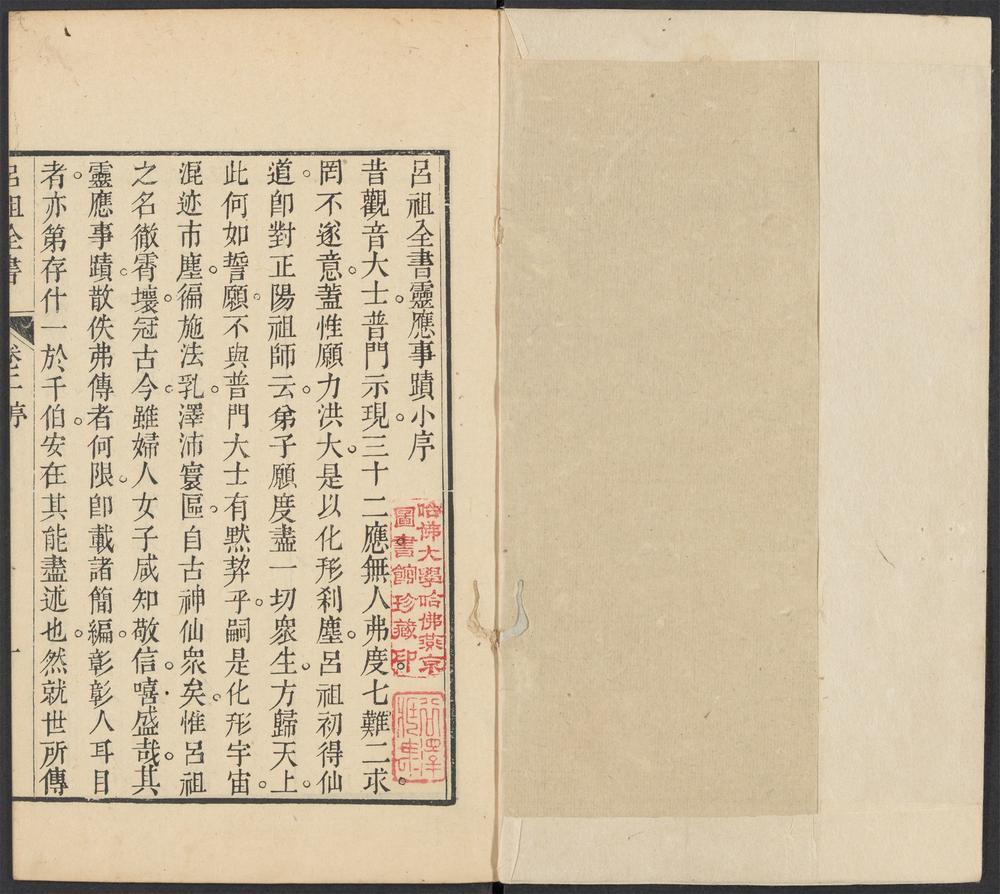 呂祖全書靈應事蹟小序
昔觀音大士。普門示現。三十二應。無人弗度。七難二求。
罔不遂意。蓋惟願力洪大。是以化形刹塵。呂祖初得仙
道。卽對正陽祖師云。弟子願度盡一切衆生。方歸天上。
此何如誓願。不與普門大士有黙契乎。嗣是化形宇宙。
混迹市塵。徧施法乳。澤沛寰區。自古神仙衆矣。惟呂祖
之名徹霄壤。冠古今。雖婦人女子。咸知敬信。嘻。盛哉。其
靈應事蹟。散佚弗傳者何限。卽載諸簡編。彰彰人耳目
者。亦第存什一於千伯。安在其能盡述也。然就世所傳
呂祖全書
卷二序
一
哈佛大學哈佛燕京
圖書館珍藏印